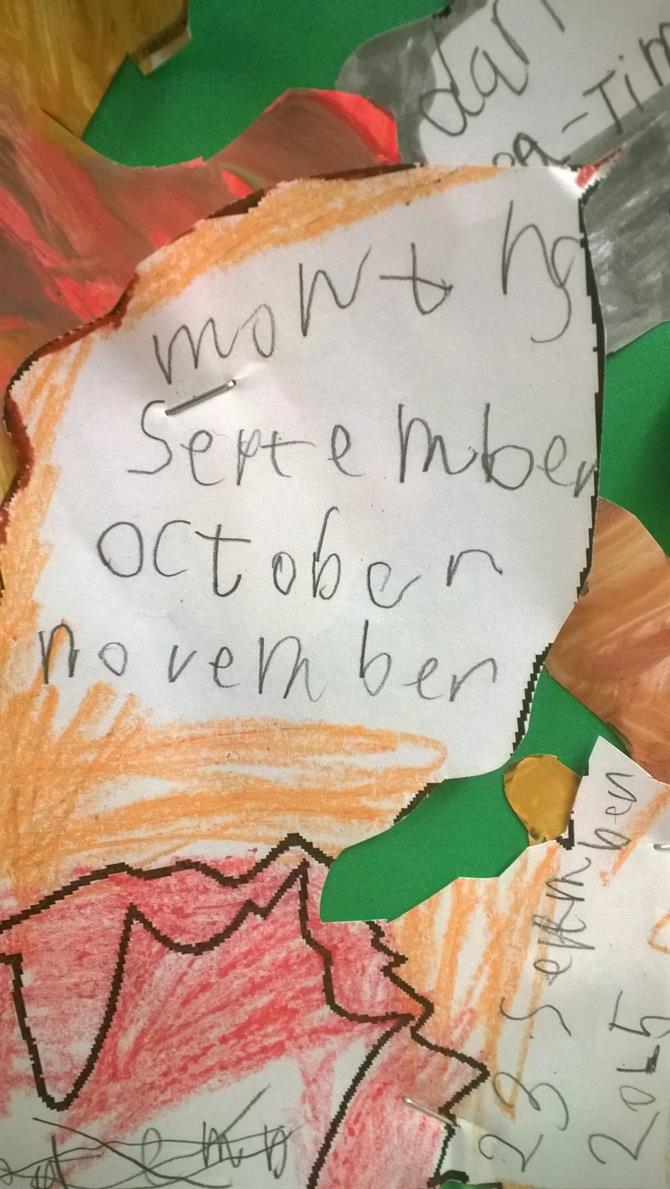 dar
ea-Tim
month s
September
october
november
23 Septm ber
2015